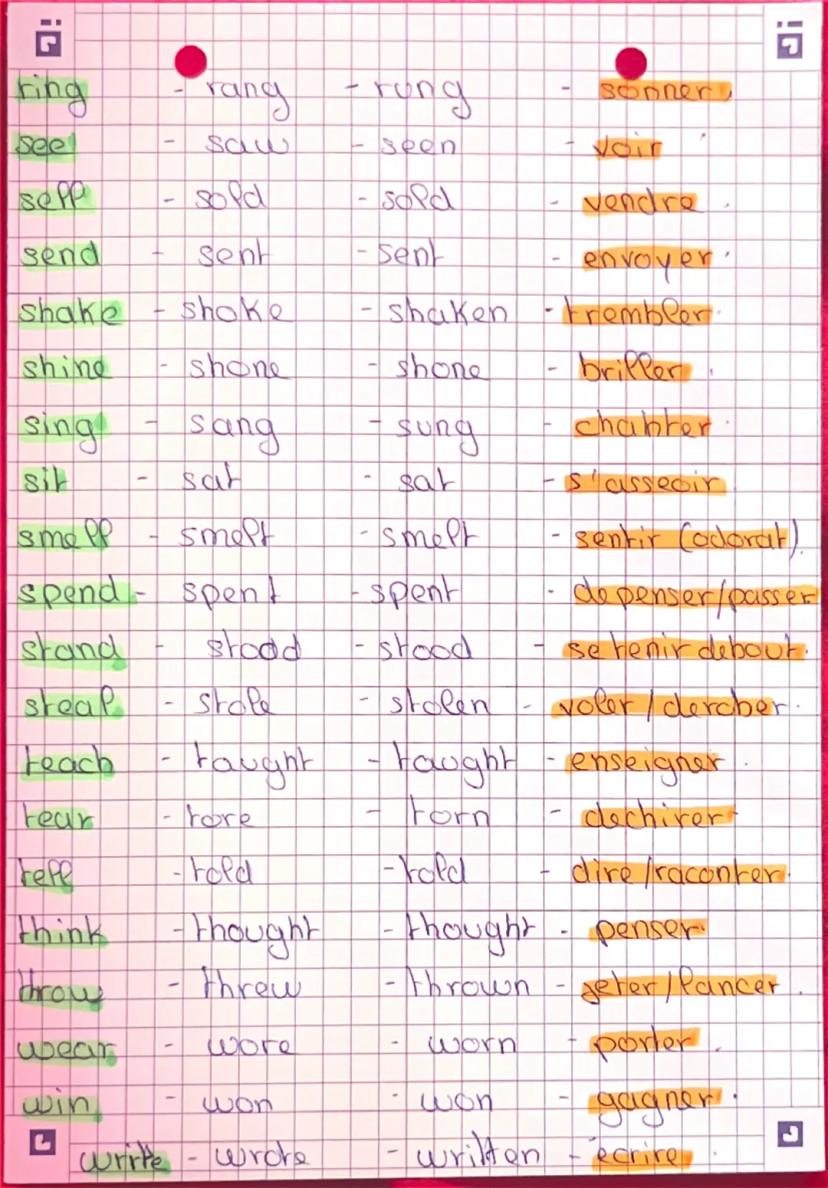 ring - rang - rung - sonner.
see - saw - seen - voir
sell - sold - sold - vendre.
send - sent - sent - envoyer.
shake - shoke - shaken - trembler.
shine - shone - shone - briller.
sing - sang - sung - chahter.
sit - sat - sat - s'asseoir.
smell - smelt - smelt - sentir (odorat).
spend - spent - spent - depenser/passer
stand - stood - stood - se tenir debout.
steal - stole - stolen - voler / dercher.
teach - taught - taught - enseigner.
tear - tore - torn - dechirer
tell - told - told - dire/raconter.
think - thought - thought - penser.
throw - threw - thrown - jeter/lancer.
wear - wore - worn - porter.
win - won - won - gagner.
write - wrote - written - écrire.